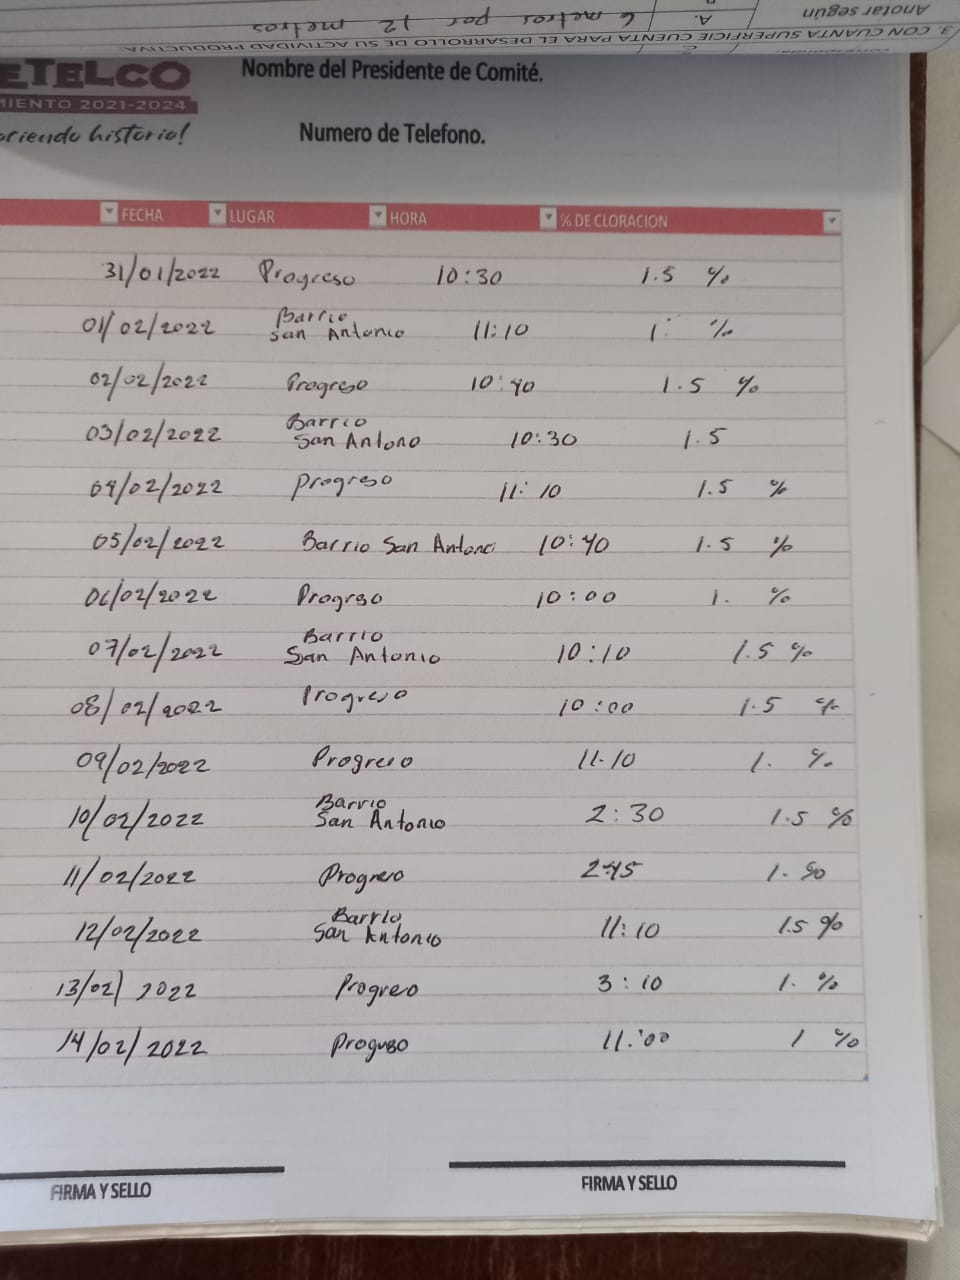 Anotar según
A. 6 metros por 12 metros
3. CON CUANTA SUPERFICIE CUENTA PARA EL DESARROLLO DE SU ACTIVIDAD PRODUCTIVA.
ETELCO
MIENTO 2021-2024
ciendo historia!
Nombre del Presidente de Comité.
Numero de Telefono.
FECHA LUGAR HORA % DE CLORACION
31/01/2022 Progreso 10:30 1.5 %
01/02/2022 Barrio San Antonio 11:10 1. %
02/02/2022 Progreso 10:40 1.5 %
03/02/2022 Barrio San Antono 10:30 1.5
04/02/2022 Progreso 11:10 1.5 %
05/02/2022 Barrio San Antonio 10:40 1.5 %
06/02/2022 Progreso 10:00 1. %
07/02/2022 Barrio San Antonio 10:10 1.5 %
08/02/2022 Progreso 10:00 1.5 %
09/02/2022 Progreso 11.10 1. %
10/02/2022 Barrio San Antonio 2:30 1.5 %
11/02/2022 Progreso 2:45 1. %
12/02/2022 Barrio San Antonio 11:10 1.5 %
13/02/2022 Progreso 3:10 1. %
14/02/2022 Progreso 11:00 1 %
FIRMA Y SELLO FIRMA Y SELLO